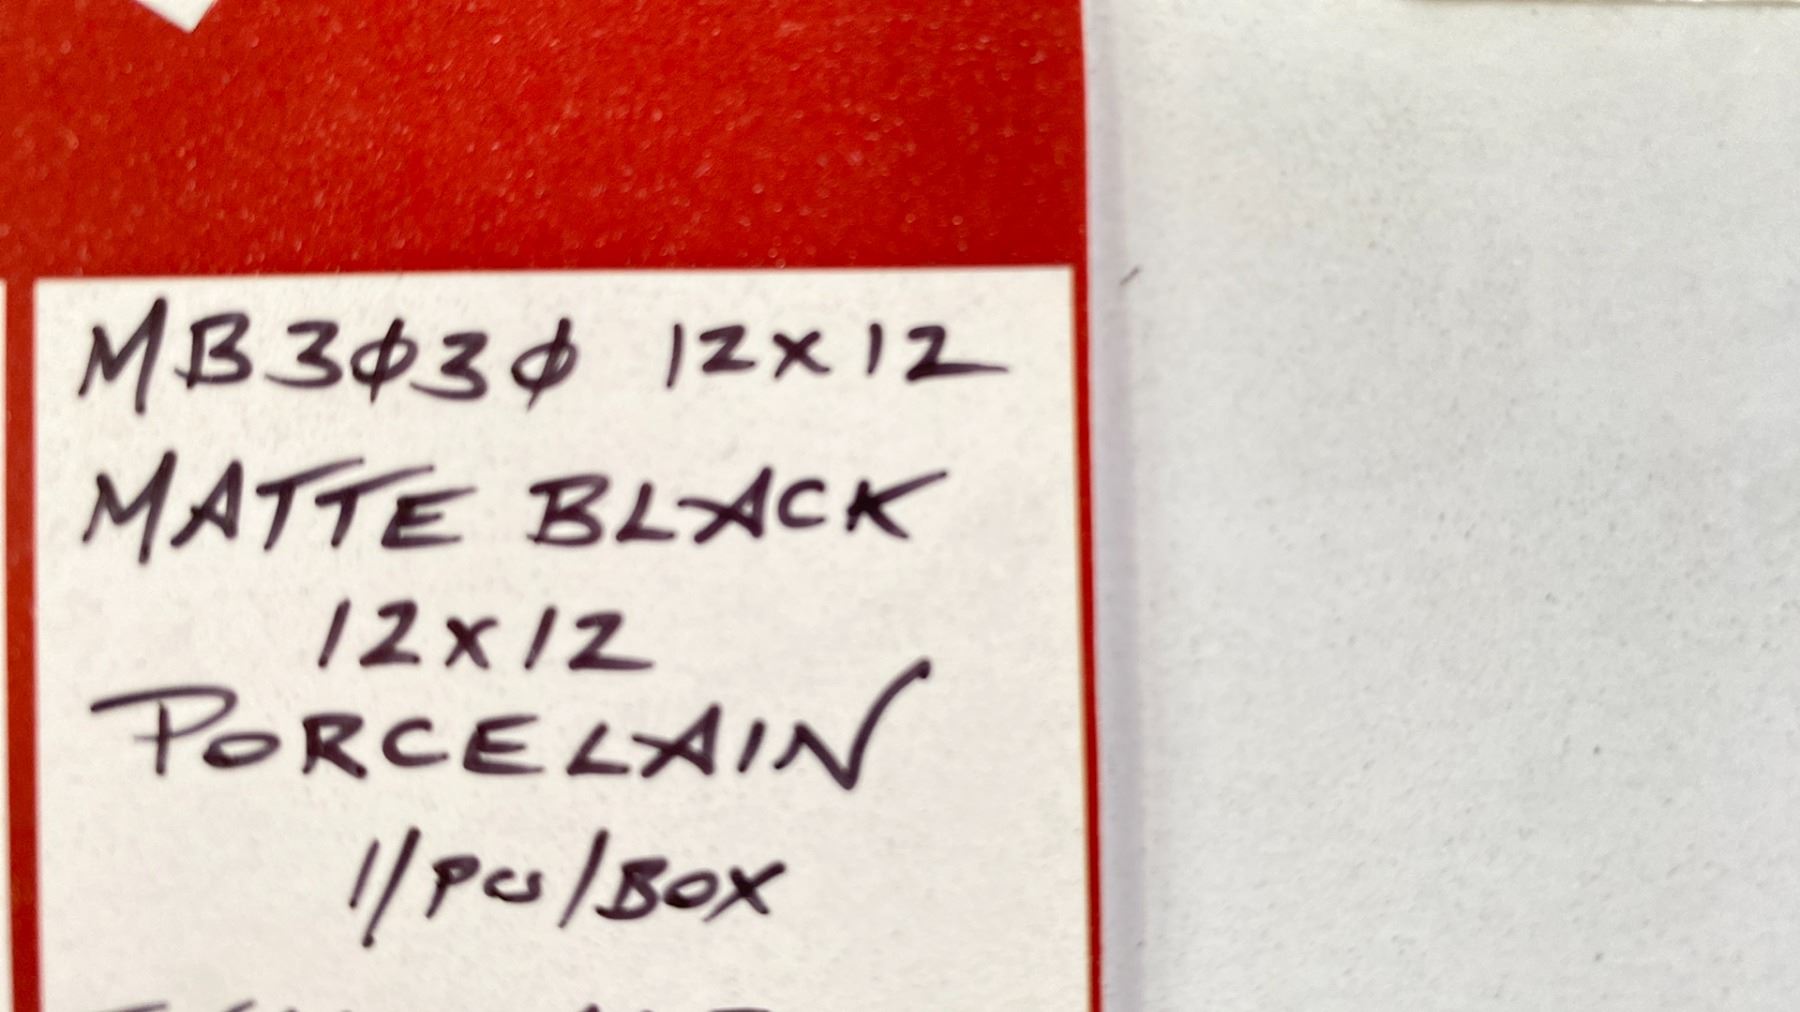 MB3030 12x12
MATTE BLACK
12x12
PORCELAIN
11/PCS/BOX